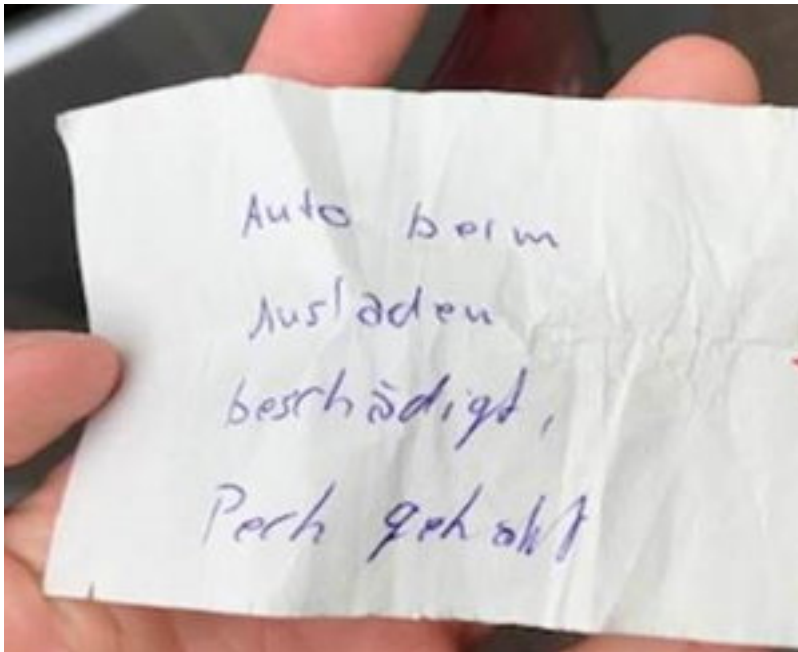 Auto beim
Ausladen
beschädigt,
Pech gehabt